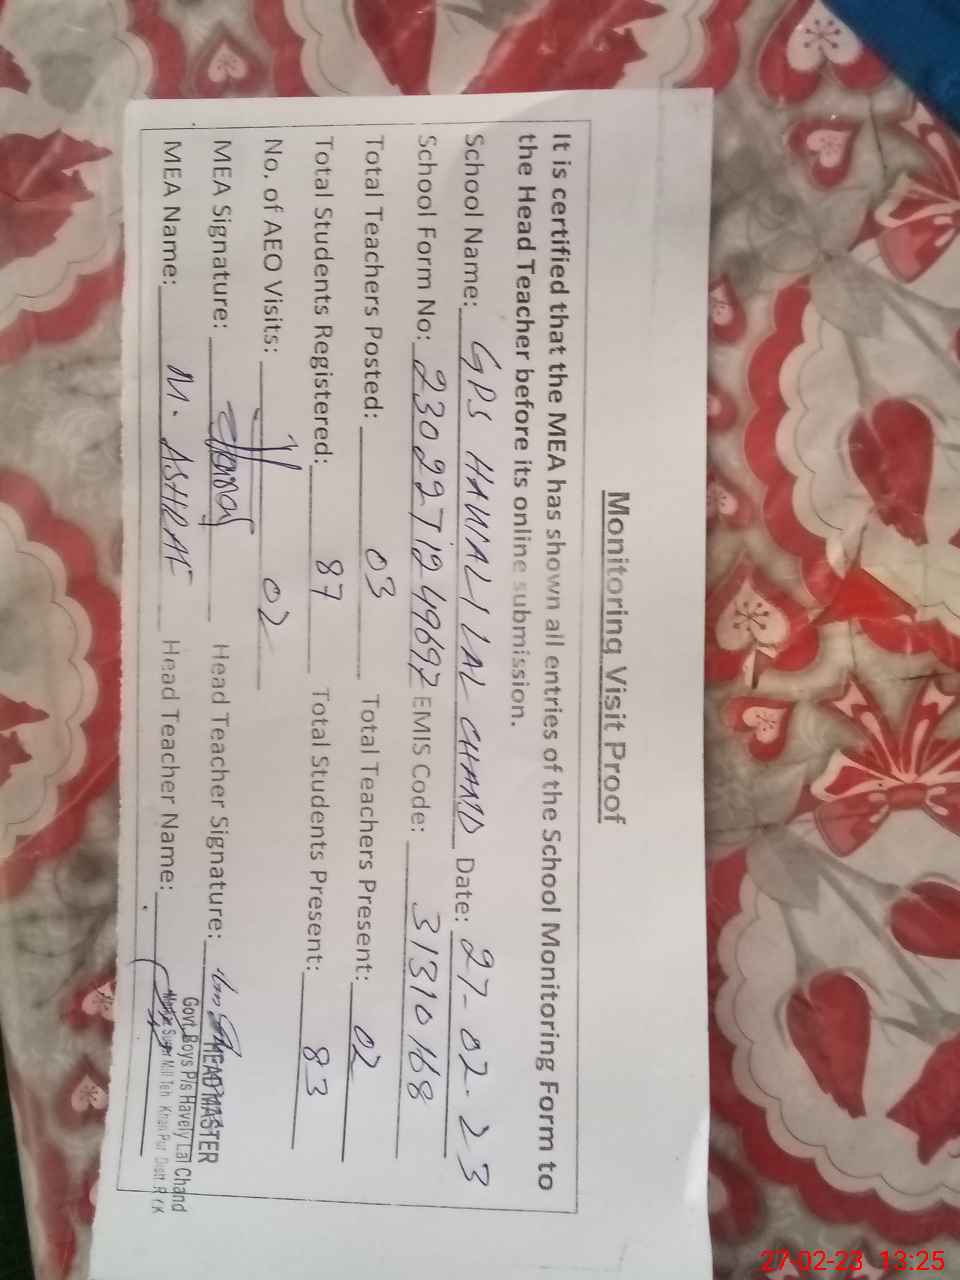 Monitoring Visit Proof
It is certified that the MEA has shown all entries of the School Monitoring Form to
the Head Teacher before its online submission.
School Name: GPS HAVALI LAL CHAND Date: 27-02-23
School Form No: 2302271249692 EMIS Code: 31310168
Total Teachers Posted: 03 Total Teachers Present: 02
Total Students Registered: 87 Total Students Present: 83
No. of AEO Visits: 02
MEA Signature: Head Teacher Signature:
MEA Name: M. ASHRAF Head Teacher Name:
HEAD MASTER
Govt. Boys P/s Havely Lal Chand
Mill Teh Khan Pur Distt. R Y K
27-02-23 13:25